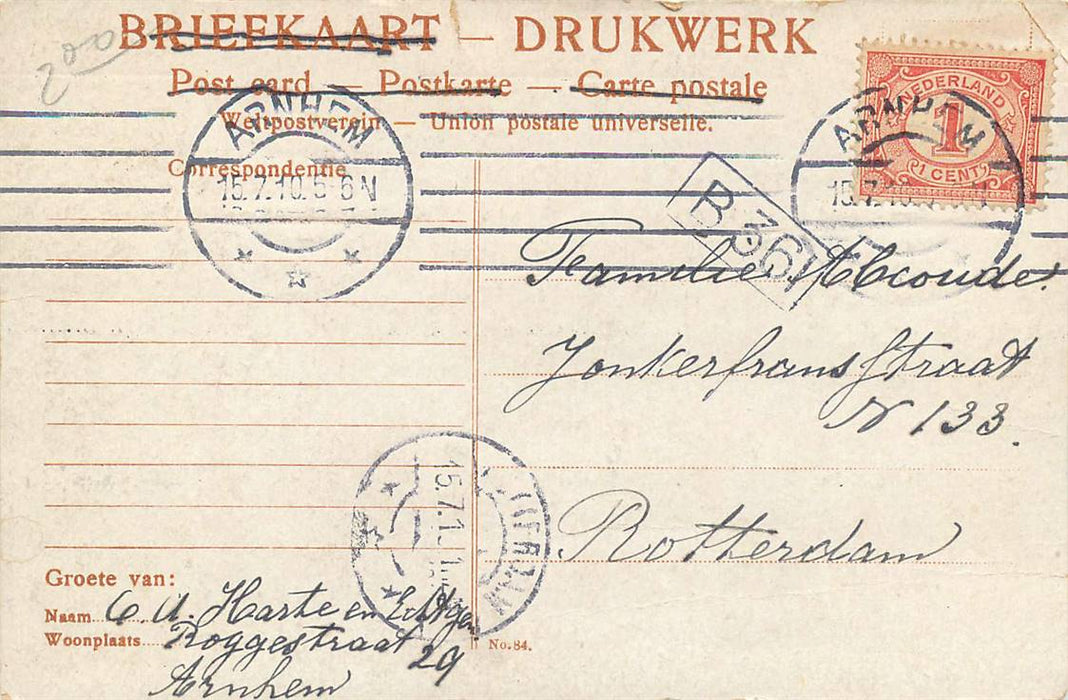 BRIEFKAART — DRUKWERK
Post card — Postkarte — Carte postale
Weltpostverein — Union postale universelle.
Correspondentie
ARNHEM
15.7.10.5-6N
NEDERLAND
1
(1 CENT)
ARNHEM
B 36
Familie Abcoude.
Jonkerfransstraat
N 133.
Rotterdam
15.7.1
Groete van:
Naam C. A. Harte en Echtgen
Woonplaats Roggestraat
29
Arnhem
No. 84.